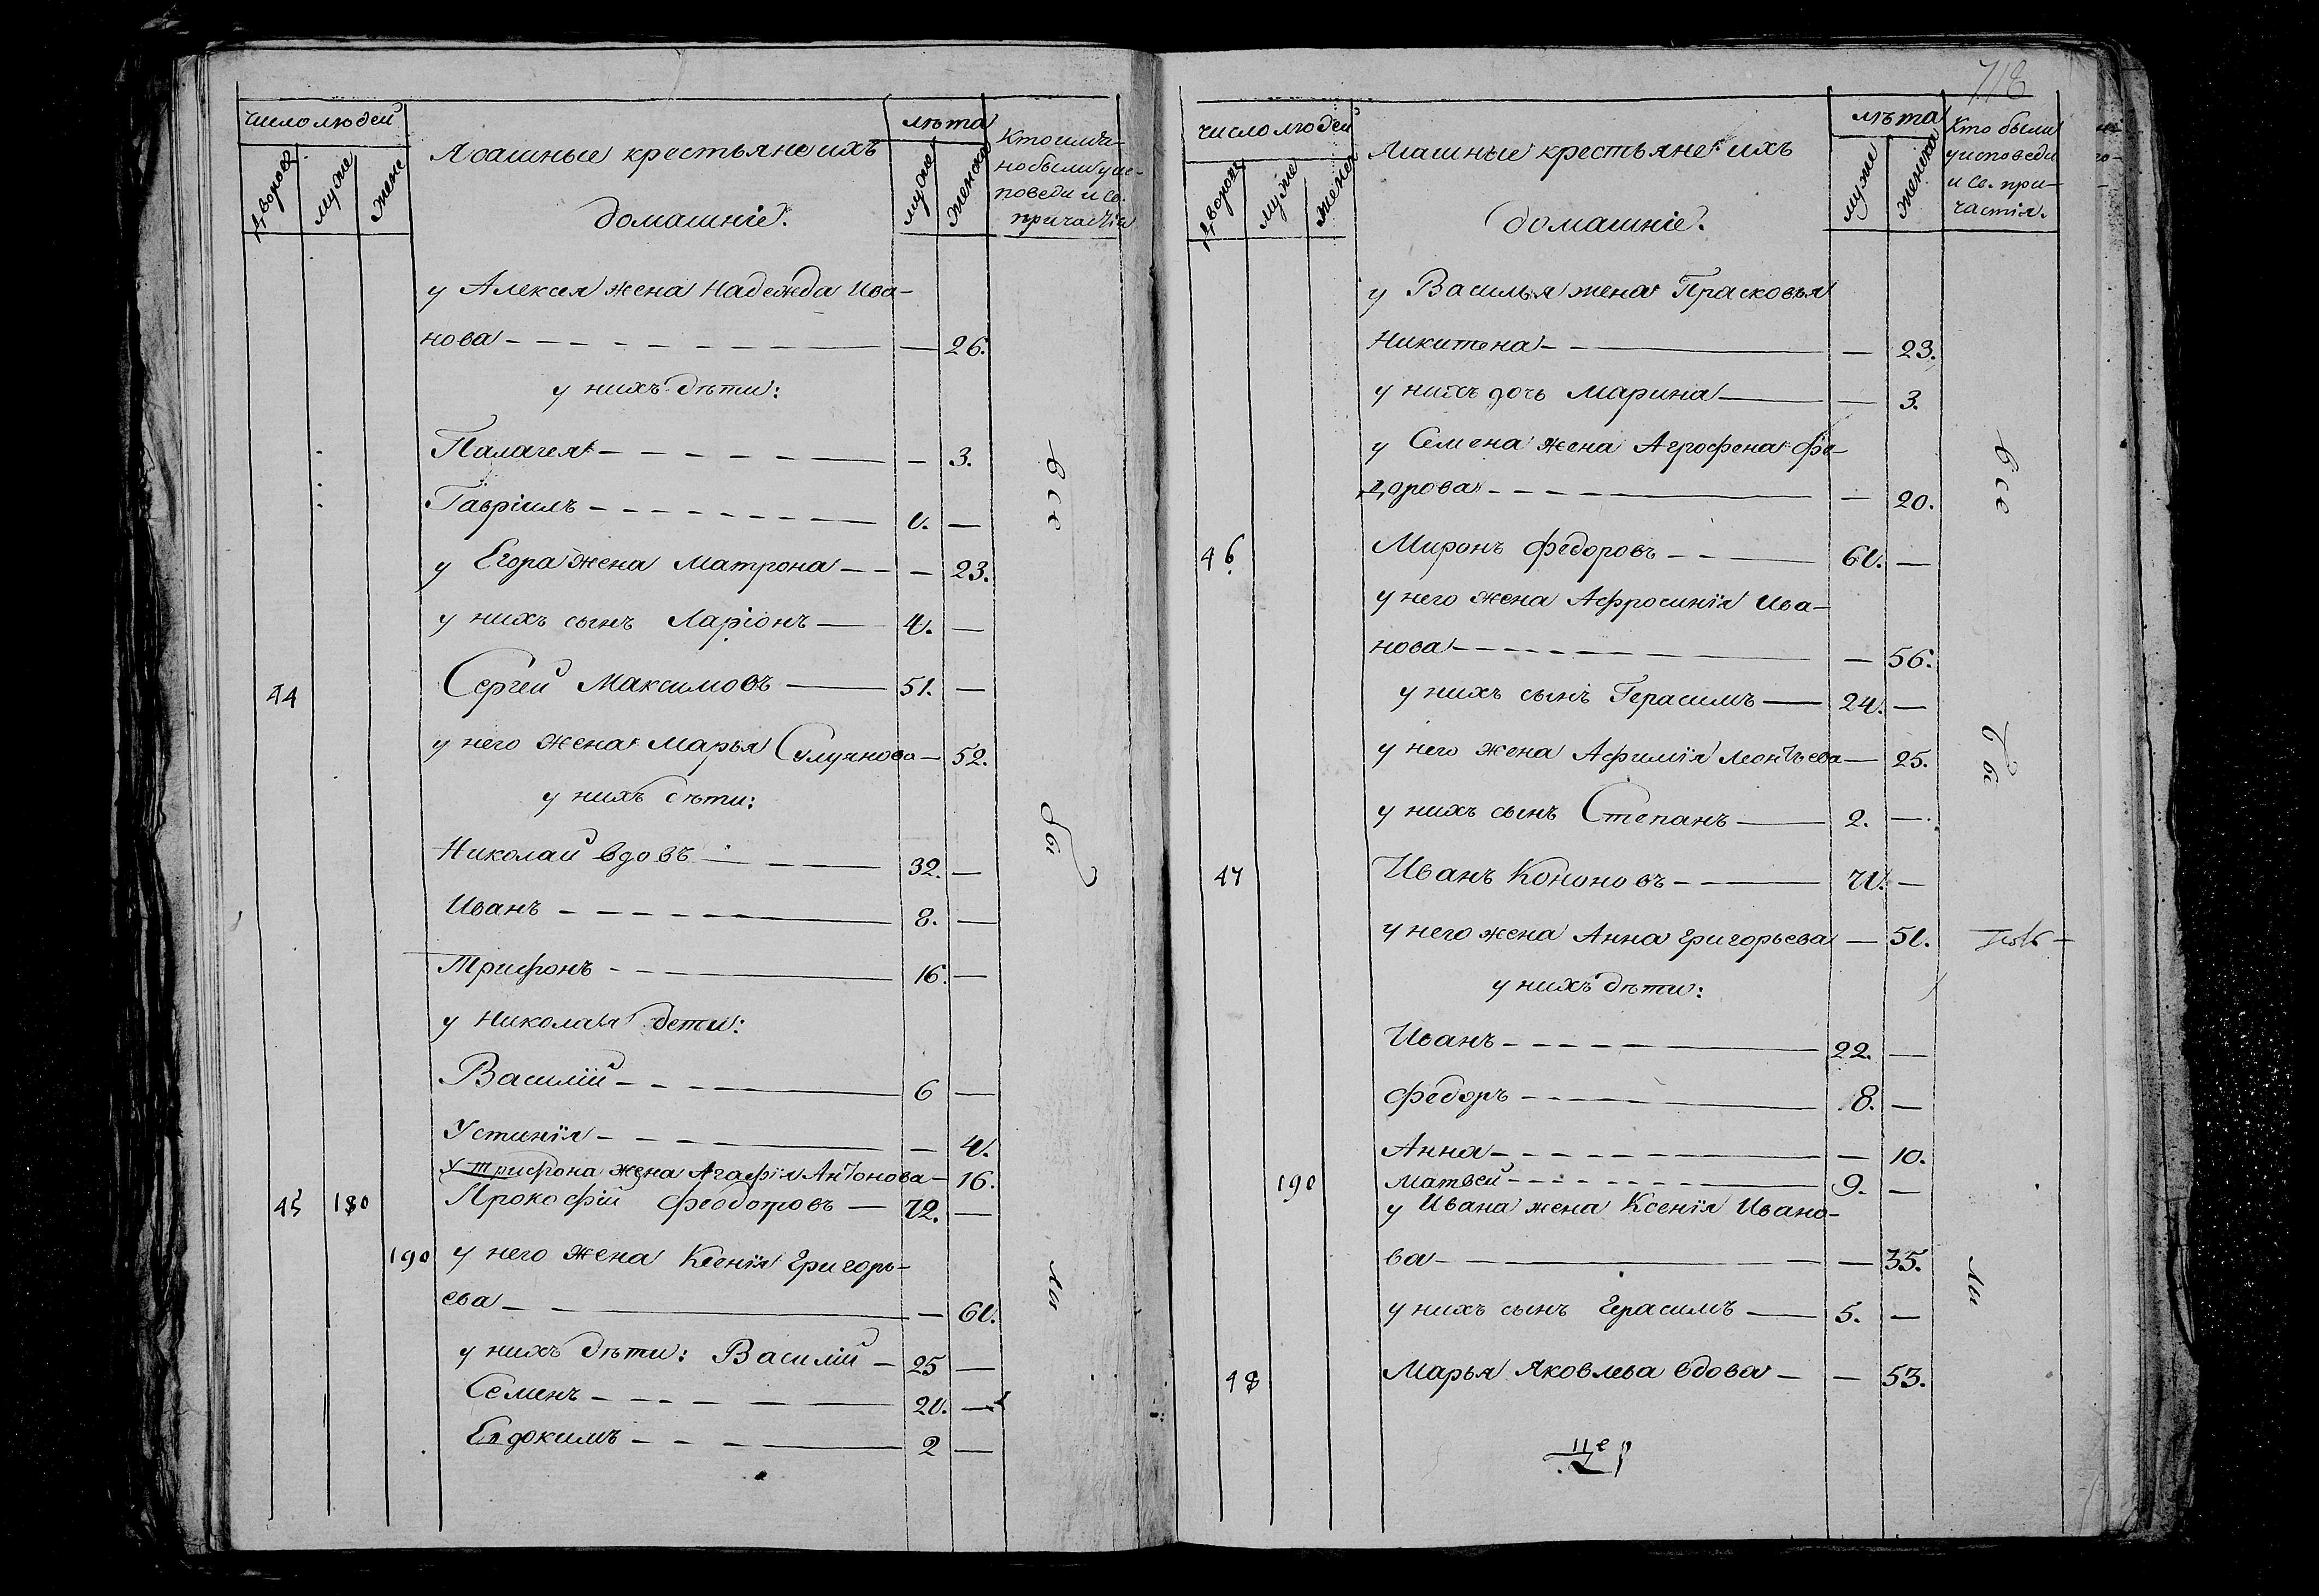 число людей
дворовъ
муже
жене
Ясашные крестьяне ихъ
домашніе.
лѣта
муже
женска
Кто имѧн-
но были у ис-
поведи и св.
причастія
у Алексея жена Надежда Ива-
нова — — 26.
у нихъ дѣти:
Палагея — — 3.
Гавріилъ — 1. —
у Егора жена Матрона — — 23.
у нихъ сынъ Ларіонъ — 4. —
44 Сергей Максимовъ — 51. —
у него жена Марья — 52.
у нихъ дѣти:
Николай вдовъ — 32. —
Иванъ — 8. —
Трифонъ — 16. —
у Николая дети:
Василій — 6 —
Устинія — — 4.
у Трифона жена Агафія Антонова — 16.
45 180 Прокофій Федотровъ — 72. —
190 у него жена Ксенія Григорь-
ева — — 61.
у нихъ дѣти: Василій — 25 —
Семенъ — 20. —
Евдокимъ — 2 —
все
бы
ли
718
число людей
дворовъ
муже
женск
Ясашные крестьяне ихъ
домашніе.
лѣта
муже
женска
Кто были
у исповеди
и св. при-
частія.
у Василья жена Прасковья
Никитена — — 23.
у нихъ дочь Марина — — 3.
у Семена жена Аграфена Фе-
дорова — — 20.
46 Миронъ Федоровъ — 61. —
у него жена Афросинія Ива-
нова — — 56.
у нихъ сынъ Герасимъ — 24. —
у него жена Афимія Леонтьева — 25.
у нихъ сынъ Степанъ — 2. —
47 Иванъ Кононовъ — 71. —
у него жена Анна Григорьева — 51.
у нихъ дѣти:
Иванъ — 22. —
Федоръ — 8. —
Анна — — 10.
190 Матвей — 9. —
у Ивана жена Ксенія Ивано-
ва — — 35.
у нихъ сынъ Герасимъ — 5. —
48 Марья Яковлева вдова — — 53.
все
бы
ли